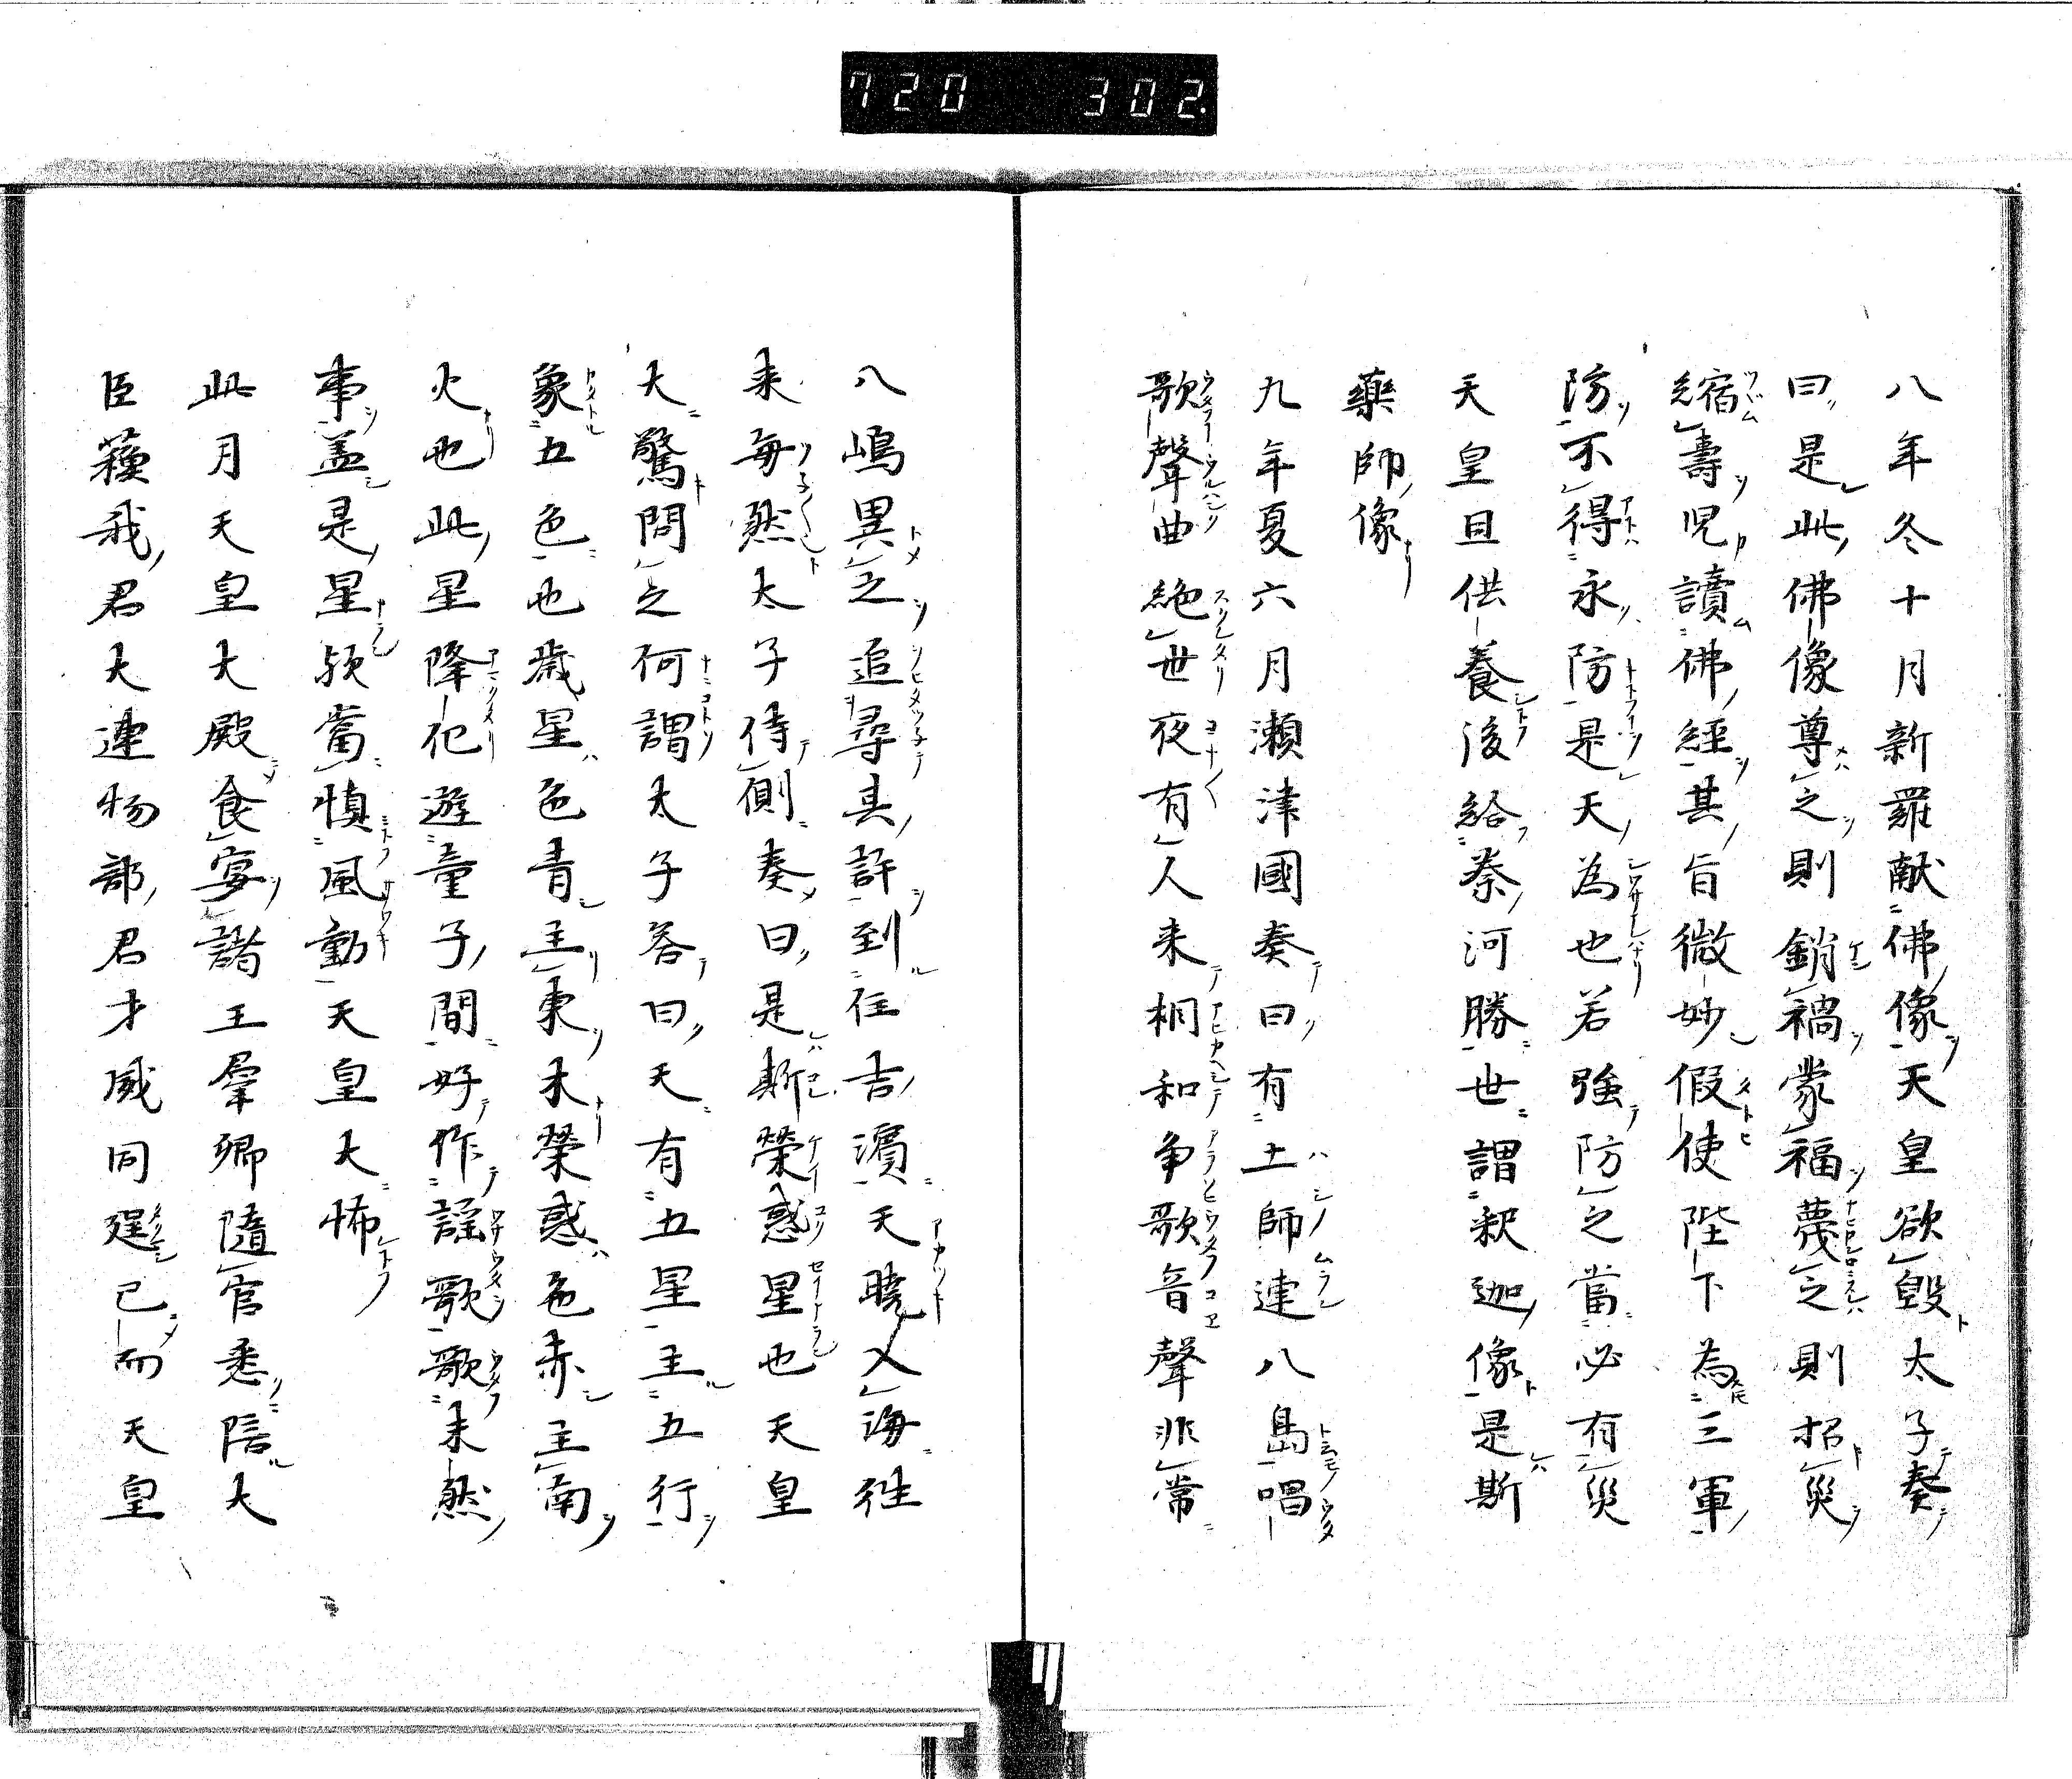 720 302
八年冬十月新羅献佛像天皇欲毀太子奏
曰是此佛像尊之則銷禍蒙福蔑之則招災
縮壽児讀佛經其旨微妙假使陛下為三軍
防不得永防是天為也若強防之當必有災
天皇且供養後給秦河勝世謂釈迦像是斯
藥師像
九年夏六月瀬津國奏曰有土師連八島唱
歌聲曲絶世夜有人来相和争歌音聲非常
八嶋異之追尋其許到住吉濱天曉入海往
来毎然太子侍側奏曰是斯榮惑星也天皇
大驚問之何謂太子答曰天有五星主五行
象五色也歳星色青主東木榮惑色赤主南
火也此星降化遊童子間好作謡歌歌未然
事盖是星欤當慎風動天皇大怖
此月天皇大殿食宴諸王羣卿隨官悉陪大
臣蘓我君大連物部君才威同逞已而天皇